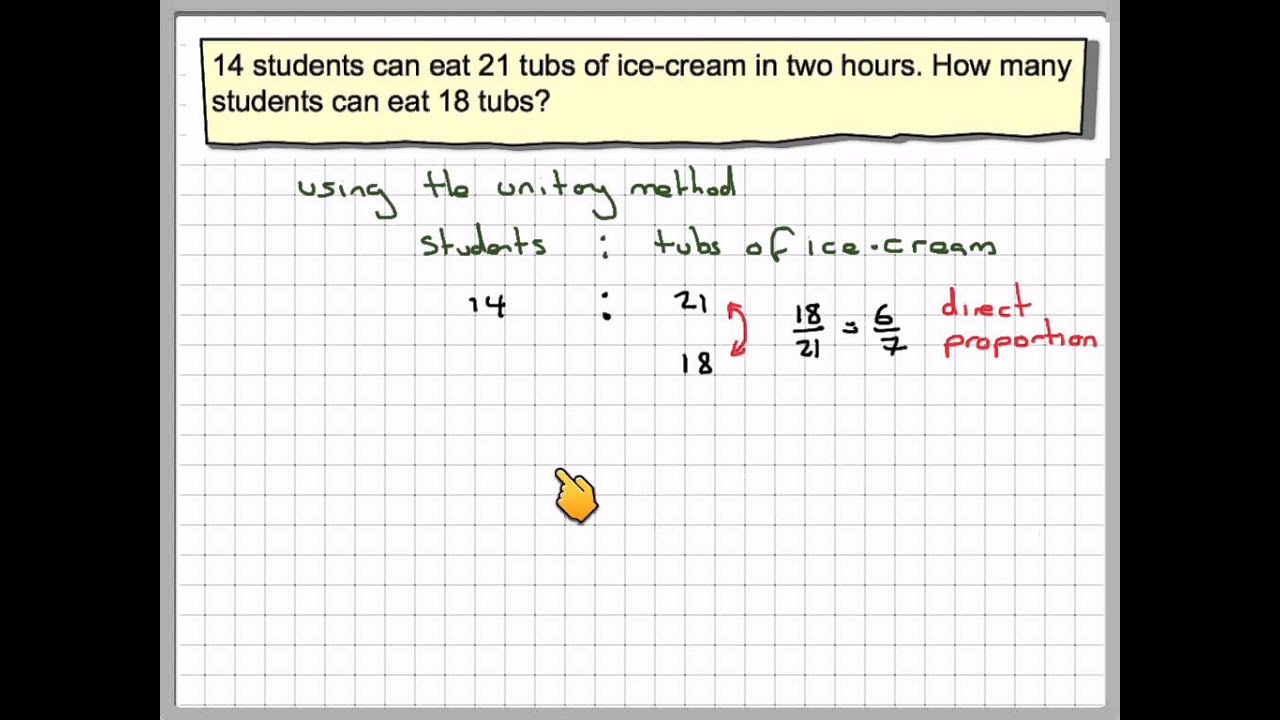 14 students can eat 21 tubs of ice-cream in two hours. How many
students can eat 18 tubs?
using the unitary method
students : tubs of ice-cream
14 : 21
18/21 = 6/7
direct
proportion
18